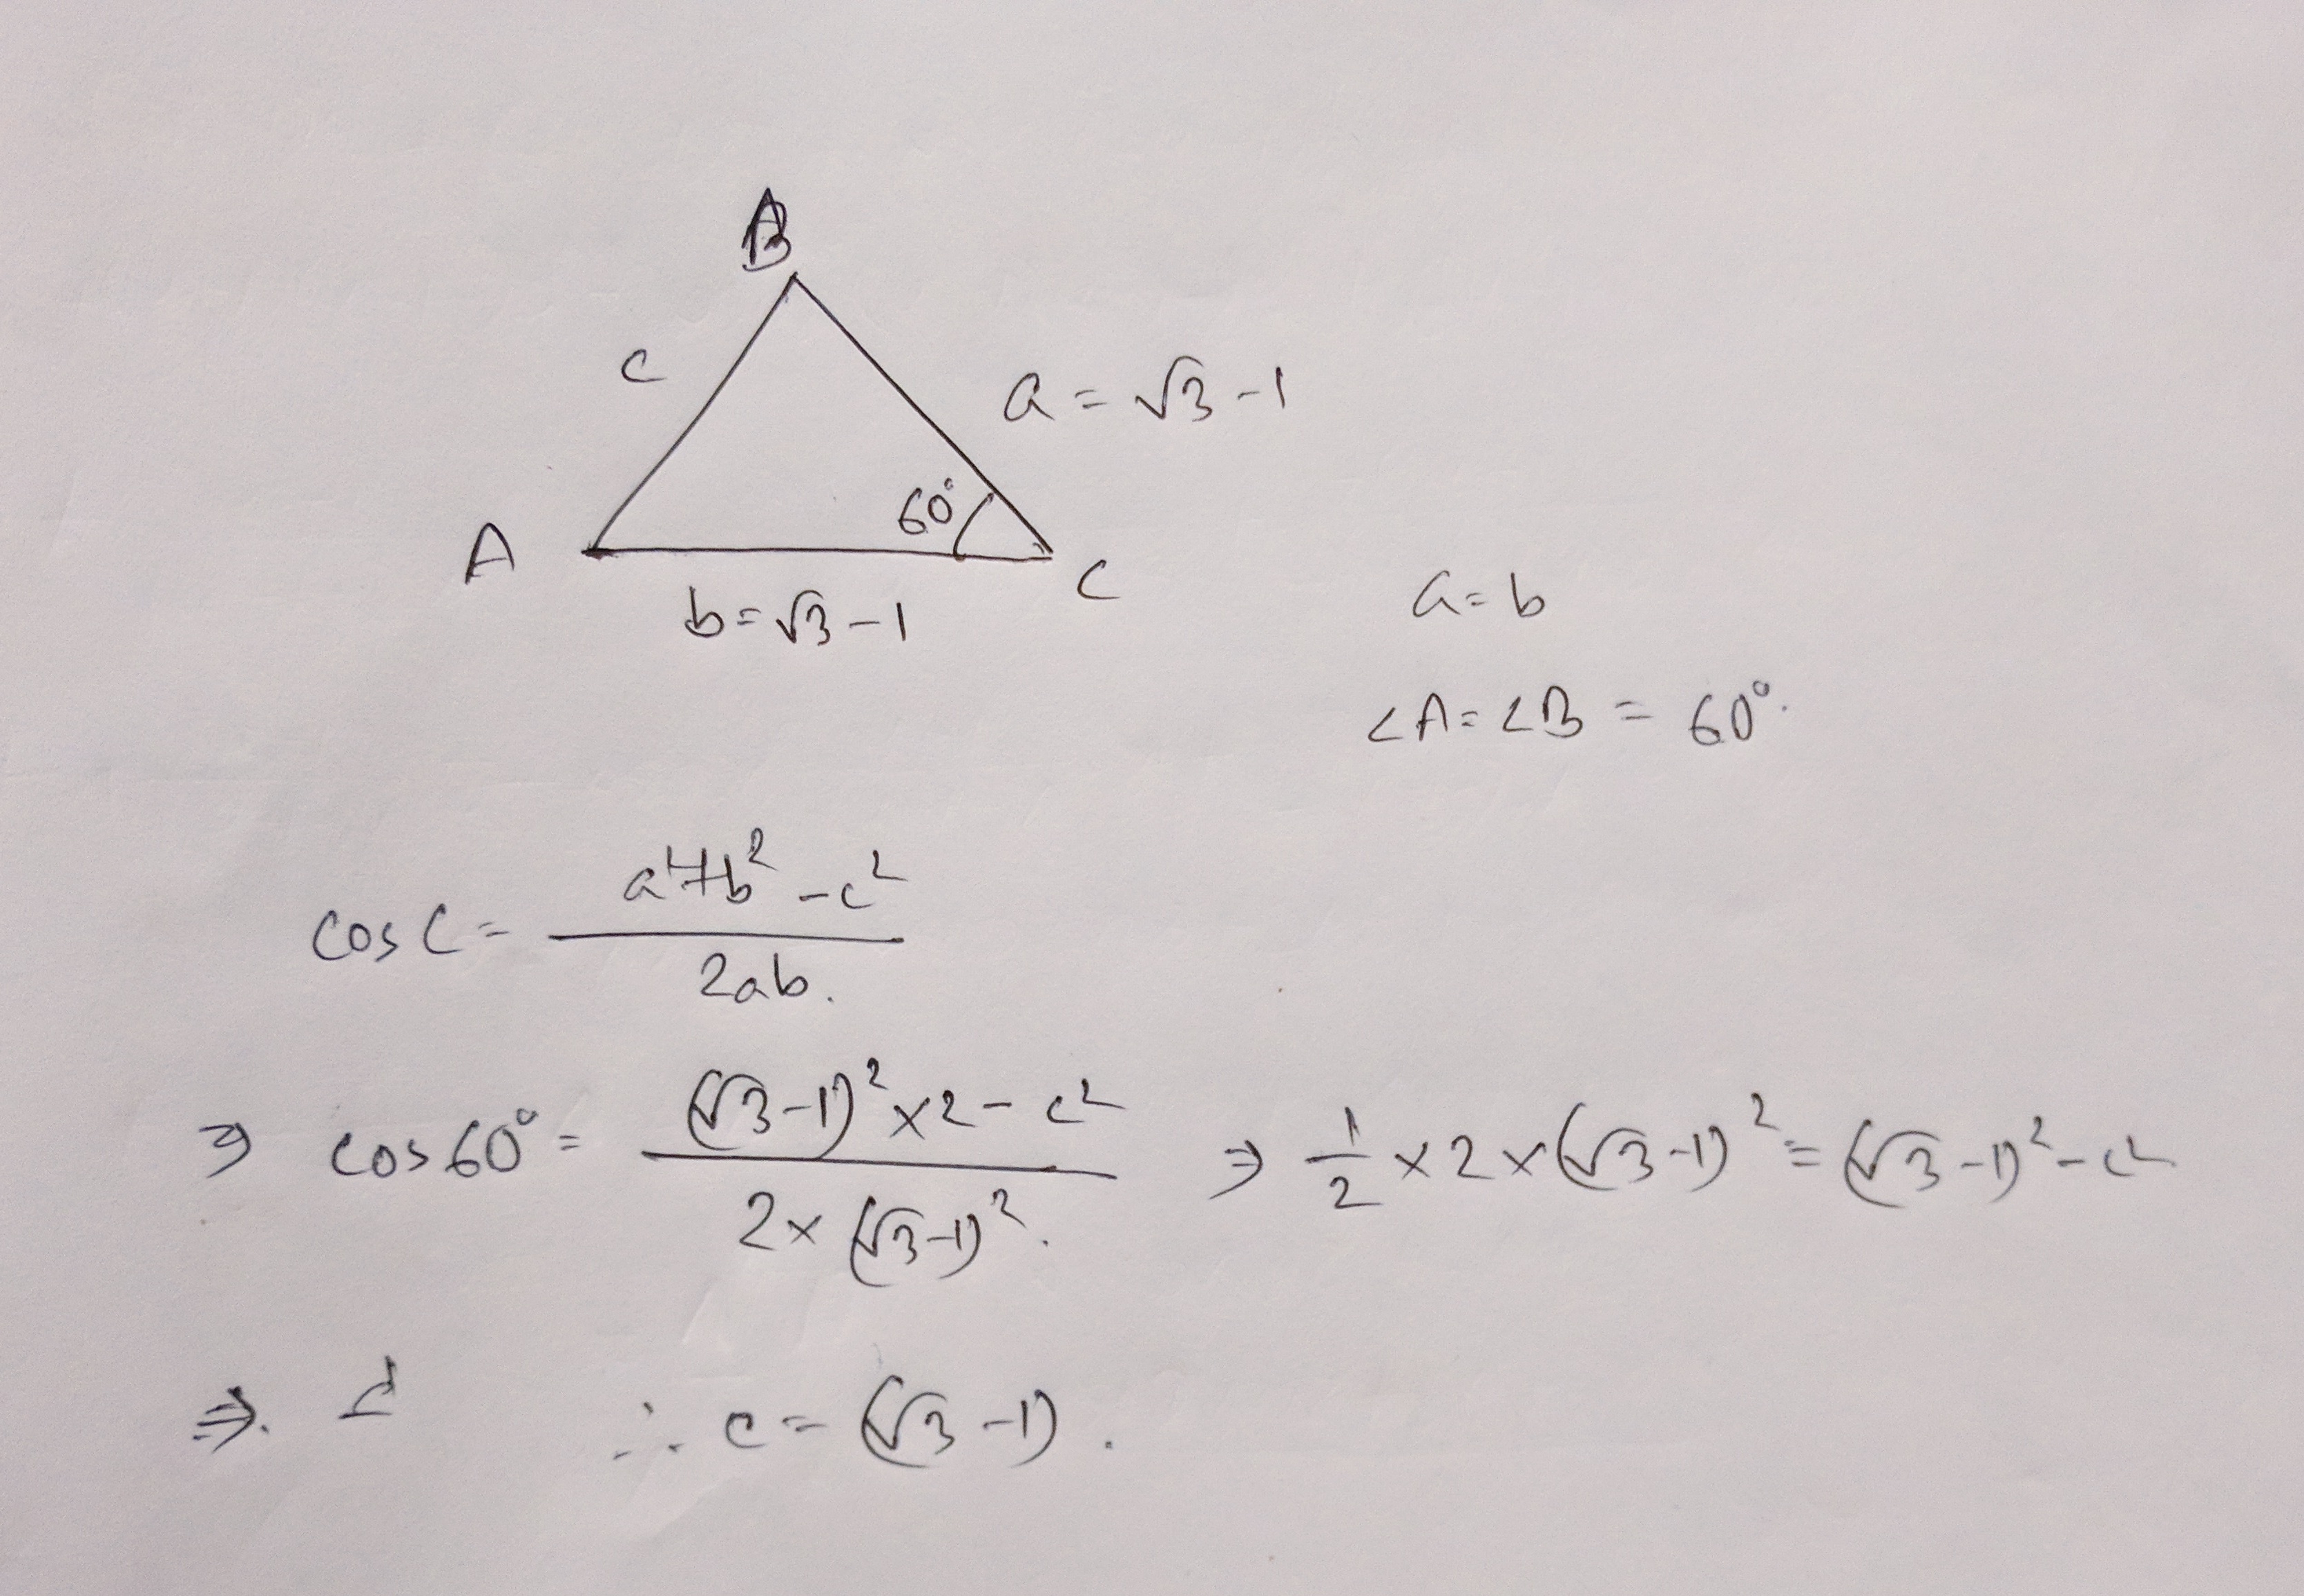 B
c
a = √3 - 1
60°
A
C
b = √3 - 1
a = b
∠A = ∠B = 60°.
cos C = (a² + b² - c²) / 2ab.
⇒ cos 60° = ((√3 - 1)² × 2 - c²) / (2 × (√3 - 1)²). ⇒ 1/2 × 2 × (√3 - 1)² = (√3 - 1)² - c²
⇒. ∴ c = (√3 - 1).